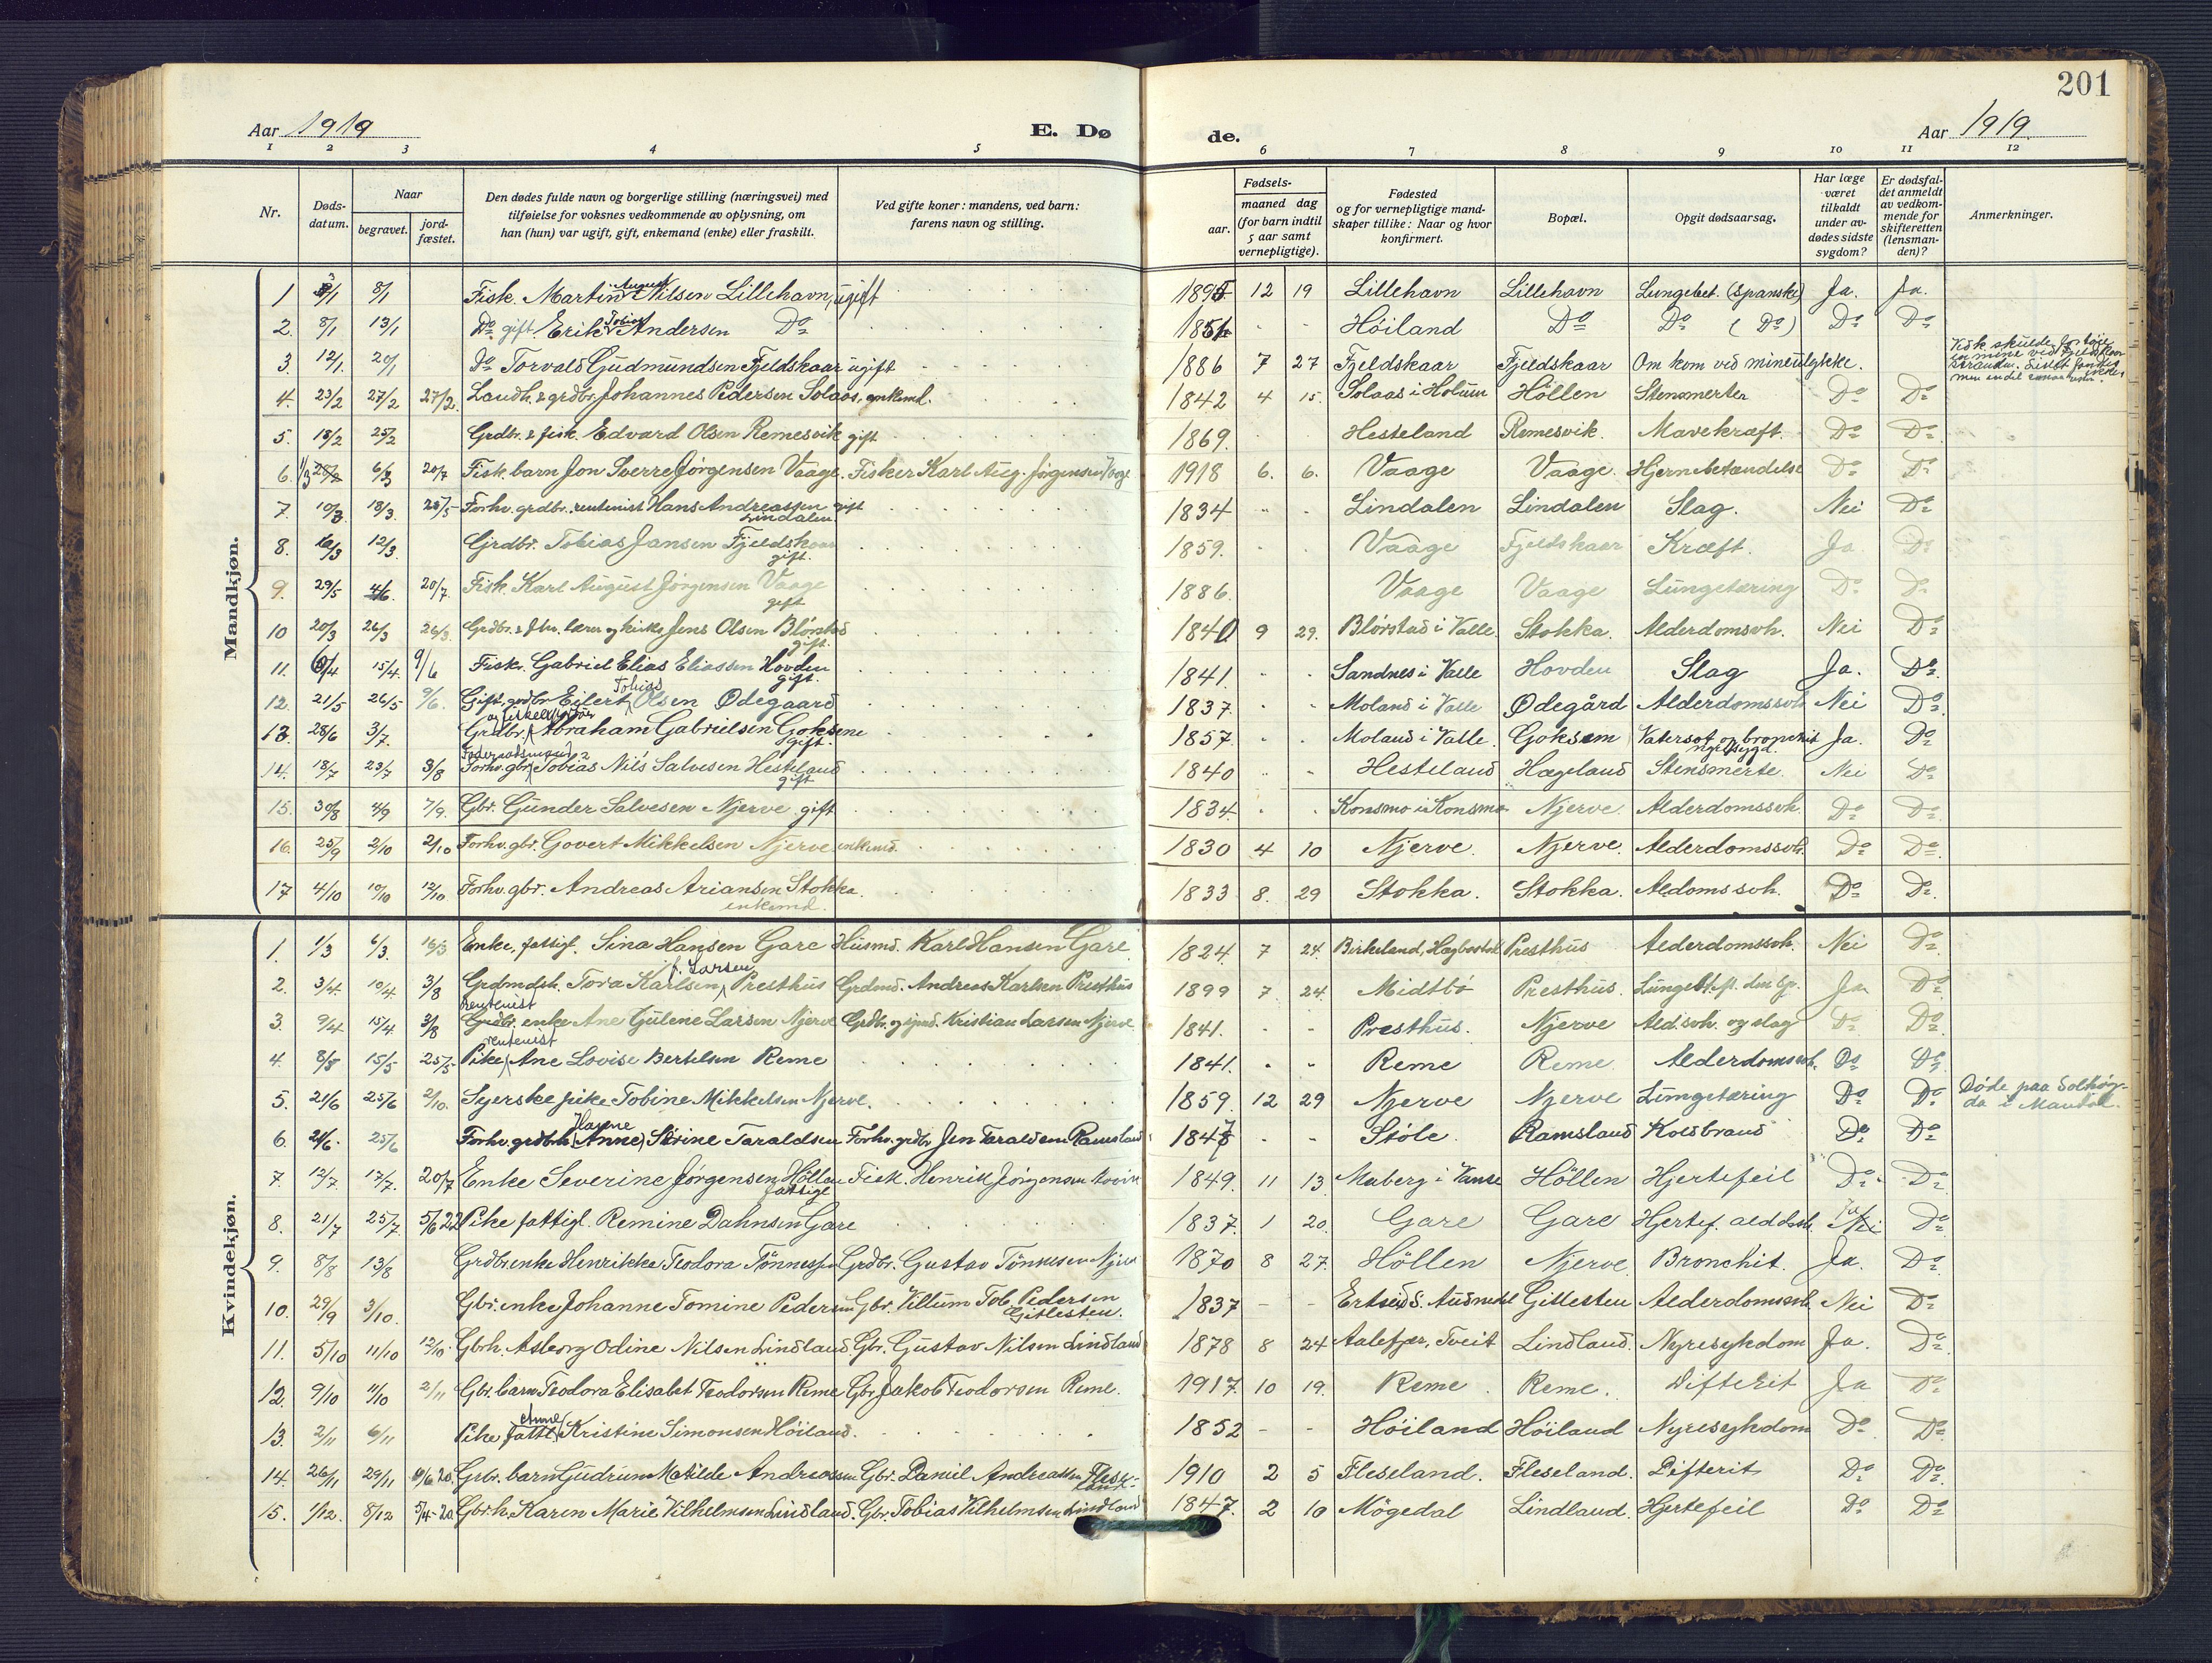 201
Aar 1919 E. Dø de. Aar 1919.
1 2 3 4 5 6 7 8 9 10 11 12
Nr. Døds-datum. Naar begravet. jord-fæstet. Den dødes fulde navn og borgerlige stilling (næringsvei) med tilføielse for voksnes vedkommende av oplysning, om han (hun) var ugift, gift, enkemand (enke) eller fraskilt. Ved gifte koner: mandens, ved barn: farens navn og stilling. Fødsels- aar. maaned dag (for barn indtil 5 aar samt vernepligtige). Fødested og for vernepligtige mand-skaper tillike: Naar og hvor konfirmert. Bopæl. Opgit dødsaarsag. Har læge været tilkaldt under av-dødes sidste sygdom? Er dødsfal-det anmeldt av vedkom-mende for skifteretten (lensman-den)? Anmerkninger.
Mandkjøn.
1 3/1 8/1 Fisk. Martin August Nilsen Lillehavn, ugift 1895 12 19 Lillehavn Lillehavn Lungebet. (Spanske) Ja. Ja.
2. 8/1 13/1 Do gift. Erik Tobias Andersen Do 1854 - - Höiland Do Do (Do) Do Do
3. 12/1. 20/1 Do Torvald Gudmundsen Fjeldskaar ugift 1886 7 27 Fjeldskaar Fjeldskaar Om kom ved mineulykke.
4. 23/2 27/2 27/2. Landh. & grdbr. Johannes Pedersen Solaas, enkemd. 1842 4 15. Solaas i Holum Höllen Stensmerter Do Do
5. 18/2 25/2 Grdbr. & fisk. Edvard Olsen Remesvik gift 1869. Hesteland Remesvik. Mavekræft. Do Do
6. 1/3 6/3 20/7 Fisk. barn Jon Sverre Jørgensen Vaage. Fisker Karl Aug. Jørgensen Vaage 1918 6. 6. Vaage Vaage. Hjernebetændelse Do Do
7. 10/3 18/3. 25/5 Forhv. grdbr. rentenist Hans Andreassen Lindalen gift 1834 Lindalen Lindalen Slag. Nei Do
8. 10/3 12/3. Gjrdbr. Tobias Jansen Fjeldskaar gift. 1859. Vaage Fjeldskaar Kræft. Ja Do
9. 29/5 4/6. 20/7. Fisk. Karl August Jørgensen Vaage gift 1886. Vaage Vaage Lungetæring Do Do
10 20/3 26/3 26/3. Jens Olsen Blörstad gift. 1840 9 29. Blörstad i Valle. Stokka. Alderdomssvh. Nei Do
11. 6/4 15/4. 9/6 Fisk. Gabriel Elias Eliassen Hovden gift. 1841. Sandnes i Valle Hovden Slag Ja. Do
12. 21/5 26/5 9/6. Gift. grdbr. Eilert Tobias Olsen Ødegaard 1837. Moland i Valle Ødegård Alderdomssvh Nei Do
13. 28/6 3/7. Grdbr. Abraham Gabrielsen Goksem gift. 1857. Moland i Valle. Goksem Vatersot og bronchit Ja. Do
14. 18/7 23/7 3/8 Forhv. gbr. Tobias Nils Salvesen Hesteland gift 1840 Hesteland Hægeland Stensmerte. Nei Do
15. 30/8 4/9 7/9. Gbr. Gunder Salvesen Njerve gift 1834. Konsmo i Konsmo Njerve. Alderdomssvh. Do Do
16. 25/9 2/10 2/10 Forhv. gbr. Govert Mikkelsen Njerve. enkemd. 1830 4 10 Njerve. Njerve. Alderdomssvh. Do Do
17 4/10 10/10 12/10 Forhv. gbr. Andreas Ariansen Stokka. enkemd. 1833 8. 29 Stokka. Stokka. Aldomssvh. Do Do
Kvindekjøn.
1. 1/3 6/3. 16/3 Enke, fattigl. Sina Hansen Gare Husmd. Karl Hansen Gare 1824. 7 24. Birkeland, Hægbostad Presthus Alderdomssvh. Nei Do
2. 3/4 10/4 3/8 Grdmdsh. Tora Karlsen f. Larsen Presthus Grdmd. Andreas Karlsen Presthus 1899 7 24. Midtbö Presthus. Ja Do
3. 9/4 15/4 3/8 rentenist Grdbr. enke Ane Gulene Larsen Njerve Grdbr. Kristian Larsen Njerve 1841. - - Presthus. Njerve Ald.svh. og slag Do Do
4. 15/5 25/5 Pike rentenist Ane Lovise Bertelsen Reme 1841. Reme Reme. Alderdomssvh. Do Do
5. 21/6 25/6 2/10. Syerske pike Tobine Mikkelsen Njerve. 1859. 12 29 Njerve Njerve Lungetæring Do Do Döde paa Solhög-da i Mandal.
6. 21/6. 25/6 Forhv. grdbrh. Anne Sörine Taraldsen Forhv. grdbr. Jen Taraldsen Ramsland 1847 - - Stöle. Ramsland Kolbrand Do Do
7. 12/7 17/7. 20/7 Enke Severine Jørgensen Höllen fattigl Fisk. Henrik Jørgensen 1849. 11 13. Maberg i Vanse Höllen Hjertefeil Do Do
8. 21/7 25/7 5/6 22 Pike fattigl. Remine Dahnsen Gare 1837. 1 20. Gare Gare Nei Do
9. 8/8 13/8 Grdbr.enke Henrikke Teodora Tönnessen Grdbr. Gustav Tönnesen Njerve 1870 8 27. Höllen Njerve. Bronchit. Ja. Do
10. 29/9 3/10. Gbr. enke Johanne Tomine Pedersen Gbr. Villum Tob. Pedersen Gitlesten. 1837 - - Gitlesten Alderdomssvh. Nei Do
11. 5/10 11/10 12/10. Gbrh. Asborg Odine Nilsen Lindland. Gbr. Gustav Nilsen Lindland 1878 8 24 Aalefjær, Tveit Lindland. Nyresykdom Ja. Do
12. 9/10 11/10 2/11 Gbr. barn Teodora Elisabet Teodorsen Reme Gbr. Jakob Teodorsen Reme. 1917. 10 19. Reme. Reme. Difterit Ja Do
13. 2/11 6/11 Pike fattl. Anne Kristine Simonsen Höiland. 1852 - - Höiland Höiland Nyresykdom Do Do
14. 26/11 29/11 6/6 20. Gbr. barn Gudrun Matilde Andreassen Gbr. Daniel Andreassen Flese-land. 1910 2 5 Fleseland. Fleseland. Difterit Do Do
15. 1/12. 8/12 5/4-20. Gbrh. Karen Marie Vilhelmsen Lindland. Gbr. Tobias Vilhelmsen Lindland 1847. 2 10 Mögedal Lindland. Hjertefeil Do Do